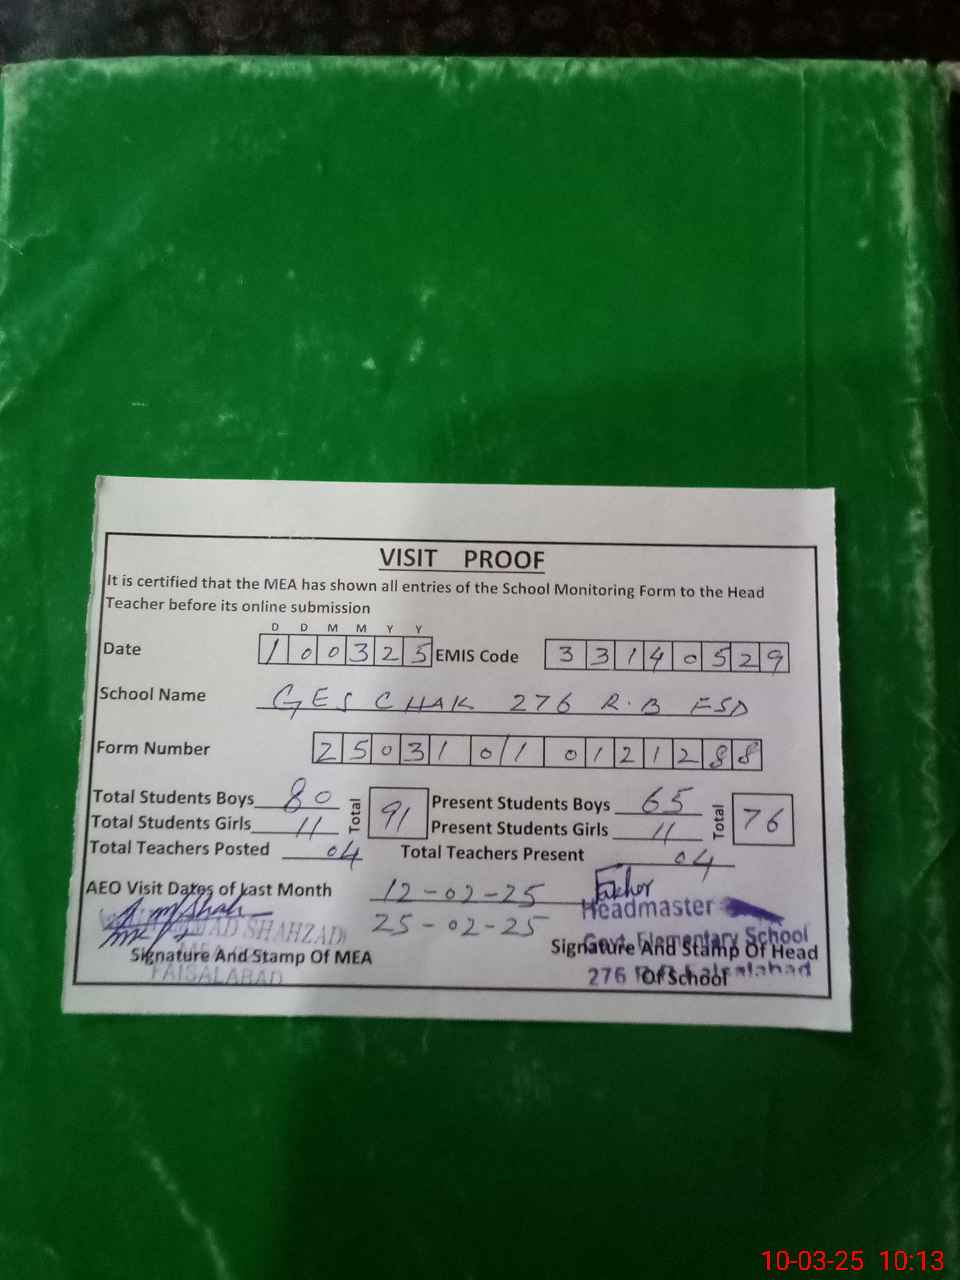 VISIT PROOF
It is certified that the MEA has shown all entries of the School Monitoring Form to the Head
Teacher before its online submission
D D M M Y Y
Date 1 0 0 3 2 5 EMIS Code 3 3 1 4 0 5 2 9
School Name GES CHAK 276 R.B FSD
Form Number 2 5 0 3 1 0 1 0 1 2 1 2 8 8
Total Students Boys 80 Total 91 Present Students Boys 65 Total 76
Total Students Girls 11 Present Students Girls 11
Total Teachers Posted 04 Total Teachers Present 04
AEO Visit Dates of Last Month 12-02-25
25-02-25
Headmaster
Govt. Elementary School
276 R.B Faisalabad
SHAHZAD
MEA
FAISALABAD
Signature And Stamp Of MEA
Signature And Stamp Of Head
Of School
10-03-25 10:13